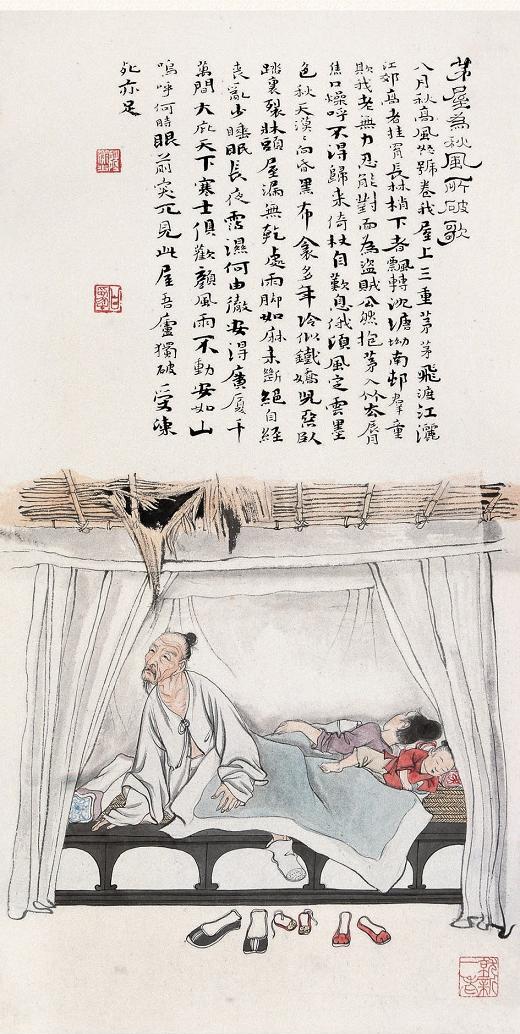 茅屋為秋風所破歌
八月秋高風怒號卷我屋上三重茅茅飛渡江灑
江郊高者挂罥長林梢下者飄轉沈塘坳南邨羣童
欺我老無力忍能對面為盜賊公然抱茅入竹去脣
焦口燥呼不得歸來倚杖自歎息俄頃風定雲墨
色秋天漠〻向昏黑布衾多年冷似鐵嬌兒惡臥
踏裏裂牀頭屋漏無乾處雨腳如麻未斷絕自經
喪亂少睡眠長夜霑濕何由徹安得廣厦千
萬間大庇天下寒士俱歡顏風雨不動安如山
嗚呼何時眼前突兀見此屋吾廬獨破受凍
死亦足